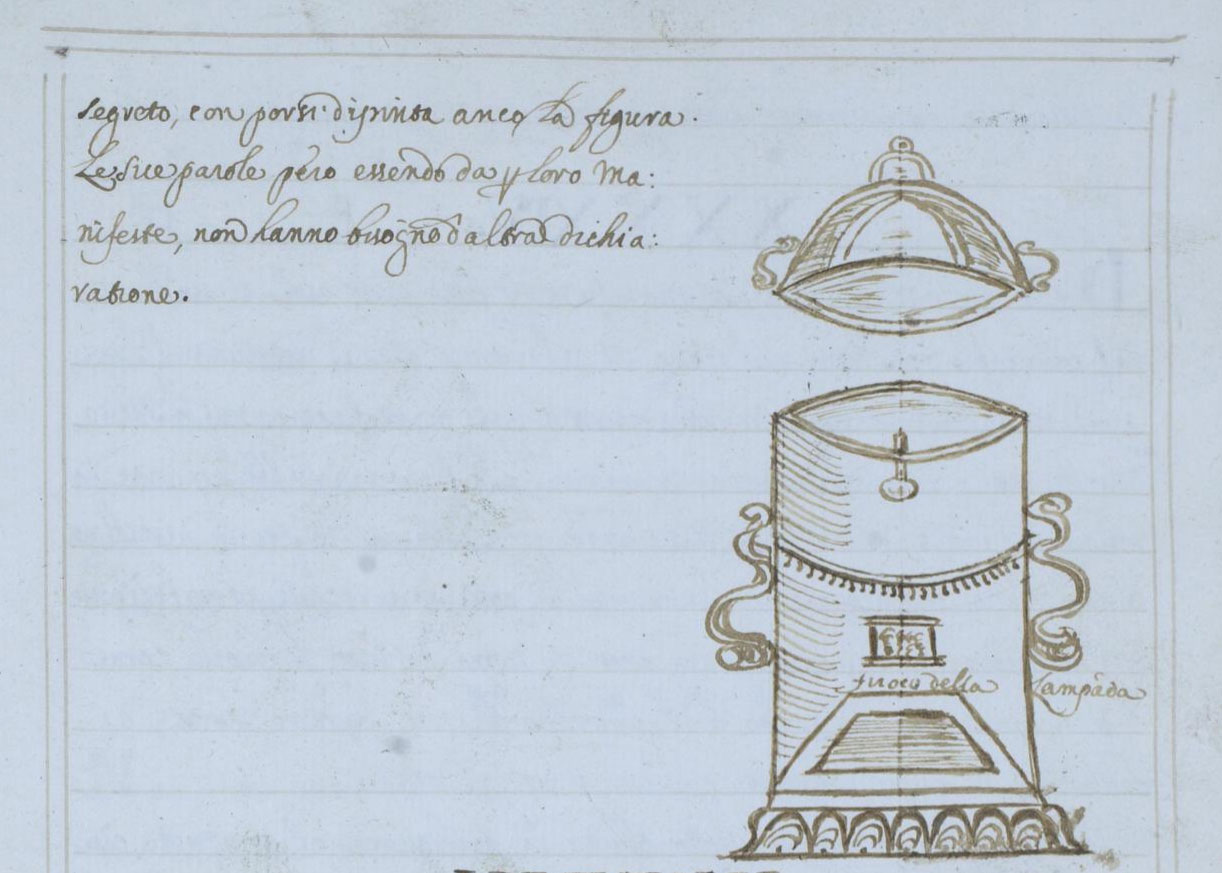 segreto, con porsi distinta anco la figura.
Le sue parole però essendo da ꝑ loro ma:
nifeste, non hanno bisogno d'altra dichia:
ratione.
fuoco della lampada